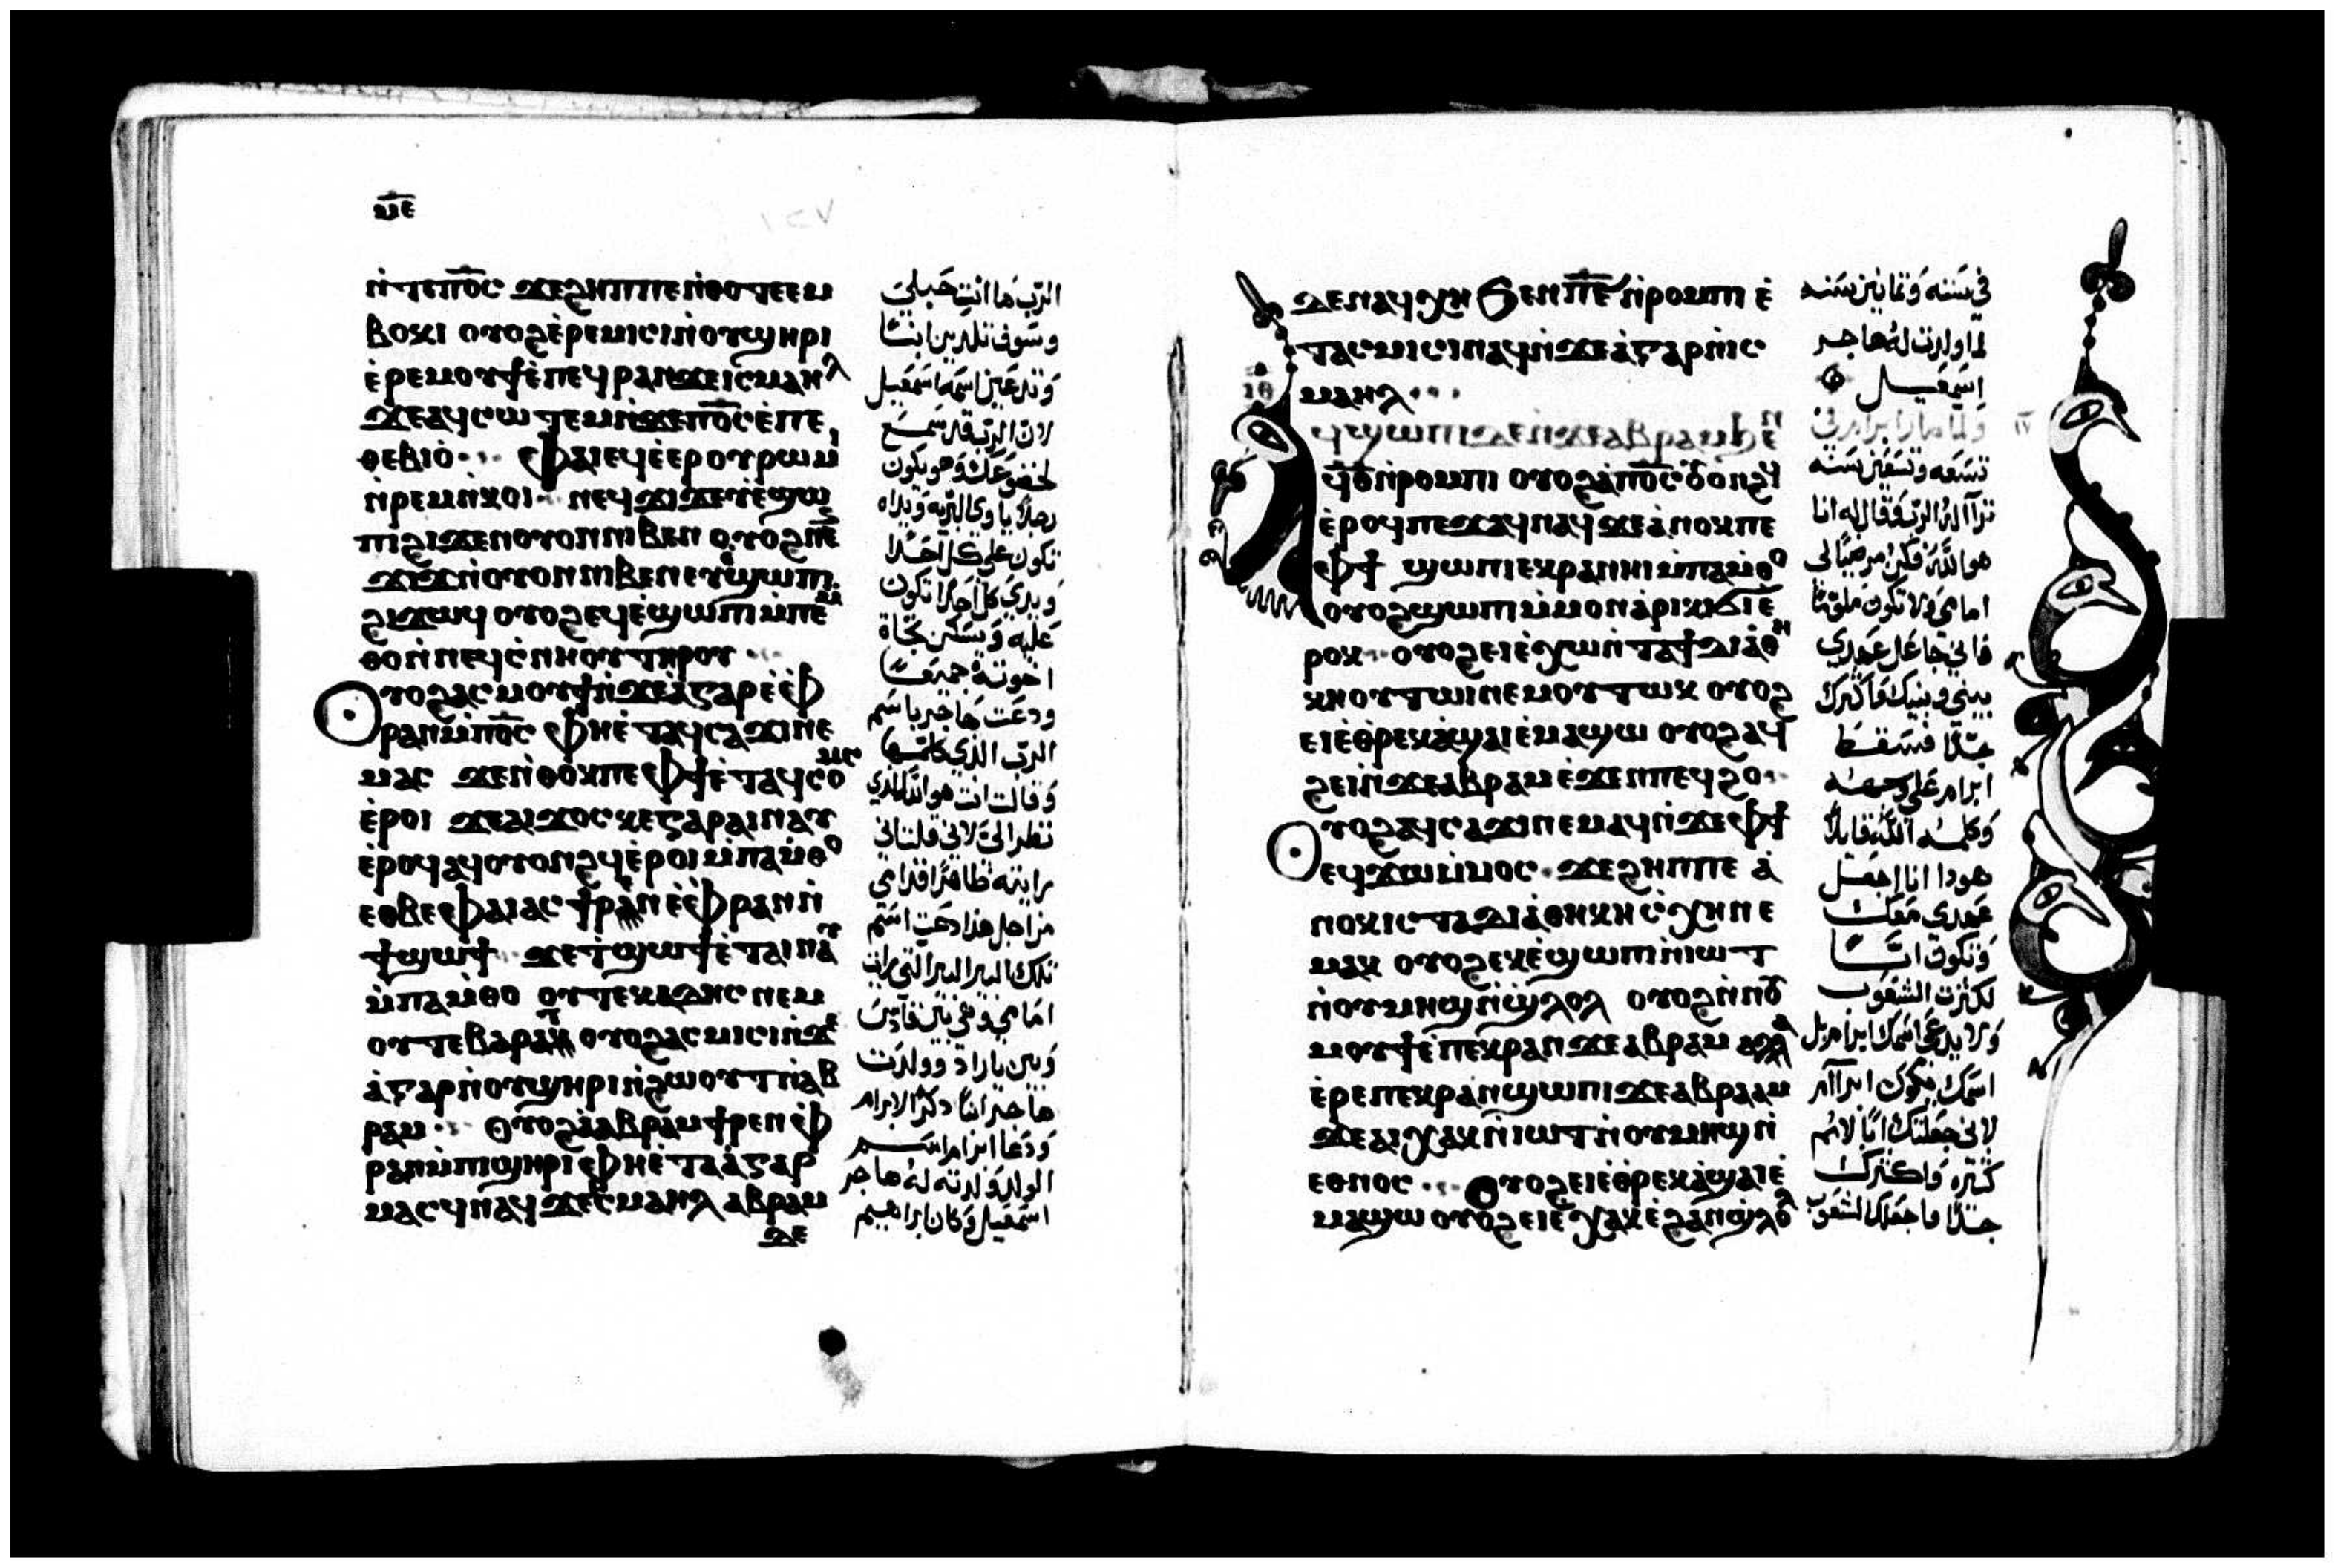 ⲙ̅ⲉ̅
ⲛ̀ⲧⲉⲡⲟ̅ⲥ̅ ϫⲉϩⲏⲡⲡⲉⲛ̀ⲑⲟⲧⲉⲉⲙ
ⲃⲟⲕⲓ ⲟⲩⲟϩⲉ̀ⲣⲉⲙⲓⲥⲓⲛ̀ⲟⲩϣⲏⲣⲓ
ⲉ̀ⲣⲉⲙⲟⲩϯⲉ̀ⲡⲉϥⲣⲁⲛϫⲉⲓⲥⲙⲁⲏⲗ
ϫⲉⲁϥⲥⲱⲧⲉⲙⲛ̀ϫⲉⲡⲟ̅ⲥ̅ⲉ̀ⲡⲉ
ⲑⲉⲃⲓⲟ̀ ⲫⲁⲓⲉϥⲉ̀ⲉⲣⲟⲩⲣⲱⲙⲓ
ⲛ̀ⲣⲉⲙⲛ̀ⲕⲟⲓ ⲛⲉϥϫⲓϫⲉⲩⲉ̀ϣⲱ
ⲡⲓϩⲓϫⲉⲛⲟⲩⲟⲛⲛⲓⲃⲉⲛ ⲟⲩⲟϩⲛⲉ
ϫⲓϫⲛ̀ⲟⲩⲟⲛⲛⲓⲃⲉⲛⲉⲩⲉ̀ϣⲱⲡⲓ
ϩⲓϫⲱϥ ⲟⲩⲟϩⲉϥⲉ̀ϣⲱⲡⲓⲙ̀ⲡⲉⲙ
ⲑⲟⲛ̀ⲛⲉϥⲥ̀ⲛⲏⲟⲩⲧⲏⲣⲟⲩ
ⲟⲩⲟϩⲁⲥⲙⲟⲩϯⲛ̀ϫⲉⲁ̀ⲅⲁⲣⲉ̀ⲉ̀ⲫ
ⲣⲁⲛⲙ̀ⲡⲟ̅ⲥ̅ ⲫⲏⲉ̀ⲧⲁϥⲥⲁϫⲓⲛⲉ
ⲙⲁⲥ ϫⲉⲛ̀ⲑⲟⲕⲡⲉⲫϯⲉ̀ⲧⲁϥⲥⲟⲙⲥ
ⲉ̀ⲣⲟⲓ ϫⲉⲁⲓϫⲟⲥⲕⲉⲅⲁⲣⲁⲓⲛⲁⲩ
ⲉ̀ⲣⲟϥⲁϥⲟⲩⲟⲛϩϥⲉ̀ⲣⲟⲓⲙ̀ⲡⲁⲙ̀ⲑⲟ
ⲉⲑⲃⲉⲫⲁⲓⲁⲥϯⲣⲉⲛⲉ̀ⲫⲣⲁⲛⲛ̀
ϯϣⲱϯ ϫⲉϯϣⲱϯⲉ̀ⲧⲁⲓⲛⲁⲩ
ⲙ̀ⲡⲁⲙ̀ⲑⲟ ⲟⲩⲧⲉⲕⲁⲇⲏⲥ ⲛⲉⲙ
ⲟⲩⲧⲉⲃⲁⲣⲁⲧ ⲟⲩⲟϩⲁⲥⲙⲓⲥⲓⲛ̀ϫⲉ
ⲁ̀ⲅⲁⲣⲛ̀ⲟⲩϣⲏⲣⲓⲛ̀ϩⲱⲟⲩⲧⲛ̀ⲁⲃ
ⲣⲁⲙ ⲟⲩⲟϩⲁ̀ⲁⲃⲣⲁⲙϯⲣⲉⲛⲉ̀ⲫ
ⲣⲁⲛⲙ̀ⲡⲓϣⲏⲣⲓⲉ̀ⲫⲏⲉ̀ⲧⲁⲁ̀ⲅⲁⲣ
ⲙⲁⲥϥⲛⲁϥ ϫⲉⲓⲥⲙⲁⲏⲗ ⲁⲃⲣⲁⲙ
ⲇⲉ
الرب ها انتِ حَبلي
وسَوف تلدين ابنًا
وتدعَين اسمَه اسمَعيل
لان الرب قد سَمع
لخضوعَك وهو يكون
رجلًا ياوي البريه ويداه
تكون علي كل احَدًا
ويدي كل احدًا تكون
عَليه ويسكن تجاة
اخوته جميعًا
ودعَت هاجر باسَم
الرب الذي كلمها
وقالت انت هو الله الذي
نظر اليَّ لاني قلت اني
رايته ظاهرًا قدامي
من اجل هذا دعَت اسَم
تلك البير البير التي رايت
امامي وهي بين قادس
وبين باراد وولدت
هاجر ابنًا ذكرًا لابرام
ودعَا ابرام اسَم
الولد ولدته له هاجر
اسمَعيل وكان ابراهيم
ⲇⲉⲛⲁϥϧⲏ ϧⲉⲛⲡ̅ⲉ̅ ⲛ̀ⲣⲟⲙⲡⲓ ⲉ̀
ⲧⲁⲥⲙⲓⲥⲓⲛⲁϥⲛ̀ϫⲉⲁ̀ⲅⲁⲣⲛ̀ⲓⲥ
ⲙⲁⲏⲗ
ⲓⲑ
ϥ̅ⲑ̅ⲛ̀ⲣⲟⲙⲡⲓ ⲟⲩⲟϩⲁ̀ⲡⲟ̅ⲥ̅ⲟⲩⲟⲛϩϥ
ⲉ̀ⲣⲟϥⲡⲉϫⲁϥⲛⲁϥ ϫⲉⲁ̀ⲛⲟⲕⲡⲉ
ⲫϯ ϣⲱⲡⲓⲉⲕⲣⲁⲛⲏⲓⲙ̀ⲡⲁⲙ̀ⲑⲟ
ⲟⲩⲟϩϣⲱⲡⲓⲙ̀ⲙⲟⲛⲁ̀ⲣⲓⲕⲓϭⲓⲉ
ⲣⲟⲕ ⲟⲩⲟϩⲉⲓⲉ̀ⲭⲱⲛ̀ⲧⲁϯⲇⲓⲁ̀ⲑⲏ
ⲕⲏⲟⲩⲧⲱⲓⲛⲉⲙⲟⲩⲧⲱⲕ ⲟⲩⲟϩ
ⲉⲓⲉ̀ⲑⲣⲉⲕⲁ̀ϣⲁⲓⲉ̀ⲙⲁϣⲱ ⲟⲩⲟϩⲁϥ
ϩⲉⲓⲛ̀ϫⲉⲁⲃⲣⲁⲙⲉ̀ϫⲉⲛⲡⲉϥϩⲟ
ⲟⲩⲟϩⲁϥⲥⲁϫⲓⲛⲉⲙⲁϥⲛ̀ϫⲉⲫϯ
ⲉϥϫⲱⲙ̀ⲙⲟⲥ ϫⲉϩⲏⲡⲡⲉ ⲁ̀
ⲛⲟⲕⲓⲥⲧⲁⲇⲓⲁ̀ⲑⲏⲕⲏⲥ̀ⲭⲏⲛⲉ
ⲙⲁⲕ ⲟⲩⲟϩⲉⲕⲉ̀ϣⲱⲡⲓⲛ̀ⲓⲱⲧ
ⲛ̀ⲟⲩⲙⲏϣⲛ̀ϣ̀ⲗⲟⲗ ⲟⲩⲟϩⲛ̀ⲛⲟⲩ
ⲙⲟⲩϯⲉ̀ⲡⲉⲕⲣⲁⲛ ϫⲉⲁⲃⲣⲁⲙ ⲁⲗⲗⲁ
ⲉ̀ⲣⲉⲡⲉⲕⲣⲁⲛϣⲱⲡⲓϫⲉⲁⲃⲣⲁⲁⲙ
ϫⲉⲁⲓⲭⲁⲕⲛ̀ⲓⲱⲧⲛ̀ⲟⲩⲙⲏϣⲛ̀
ⲉⲑⲛⲟⲥ ⲟⲩⲟϩⲉⲓⲉ̀ⲑⲣⲉⲕⲁ̀ϣⲁⲓⲉ̀
ⲙⲁϣⲱ ⲟⲩⲟϩⲉⲓⲉ̀ⲭⲁⲕⲉ̀ϩⲁⲛϣ̀ⲗⲟⲗ
في سَنه وثمانين سَنه
لما ولدت لهُ هاجر
اسمَعيل
تسَعَه وتسَعَين سَنه
تراآ له الرب وقال له انا
هو الله فكن مرضيًا لي
امامي ولا تكون ملومًا
فاني جاعَل عَهدي
بيني وبينك واكثرك
جدًا فسَقط
ابرام علي وجهه
وكلمه الله قايلًا
هودا انا اجعَل
عَهدي مَعَك
وتكون ابًا
لكثرت الشعَوب
ولا يدعَي اسَمك ابرام بل
اسَمك يكون ابراآم
لاني جعَلتك ابًا لامم
كثيره واكثرك
جدًا واجعَلك الشعَوب